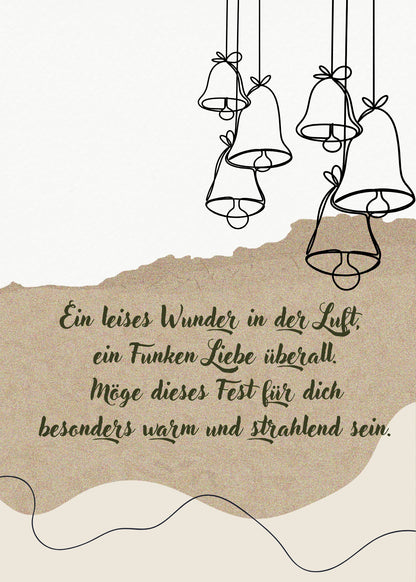 Ein leises Wunder in der Luft,
ein Funken Liebe überall.
Möge dieses Fest für dich
besonders warm und strahlend sein.